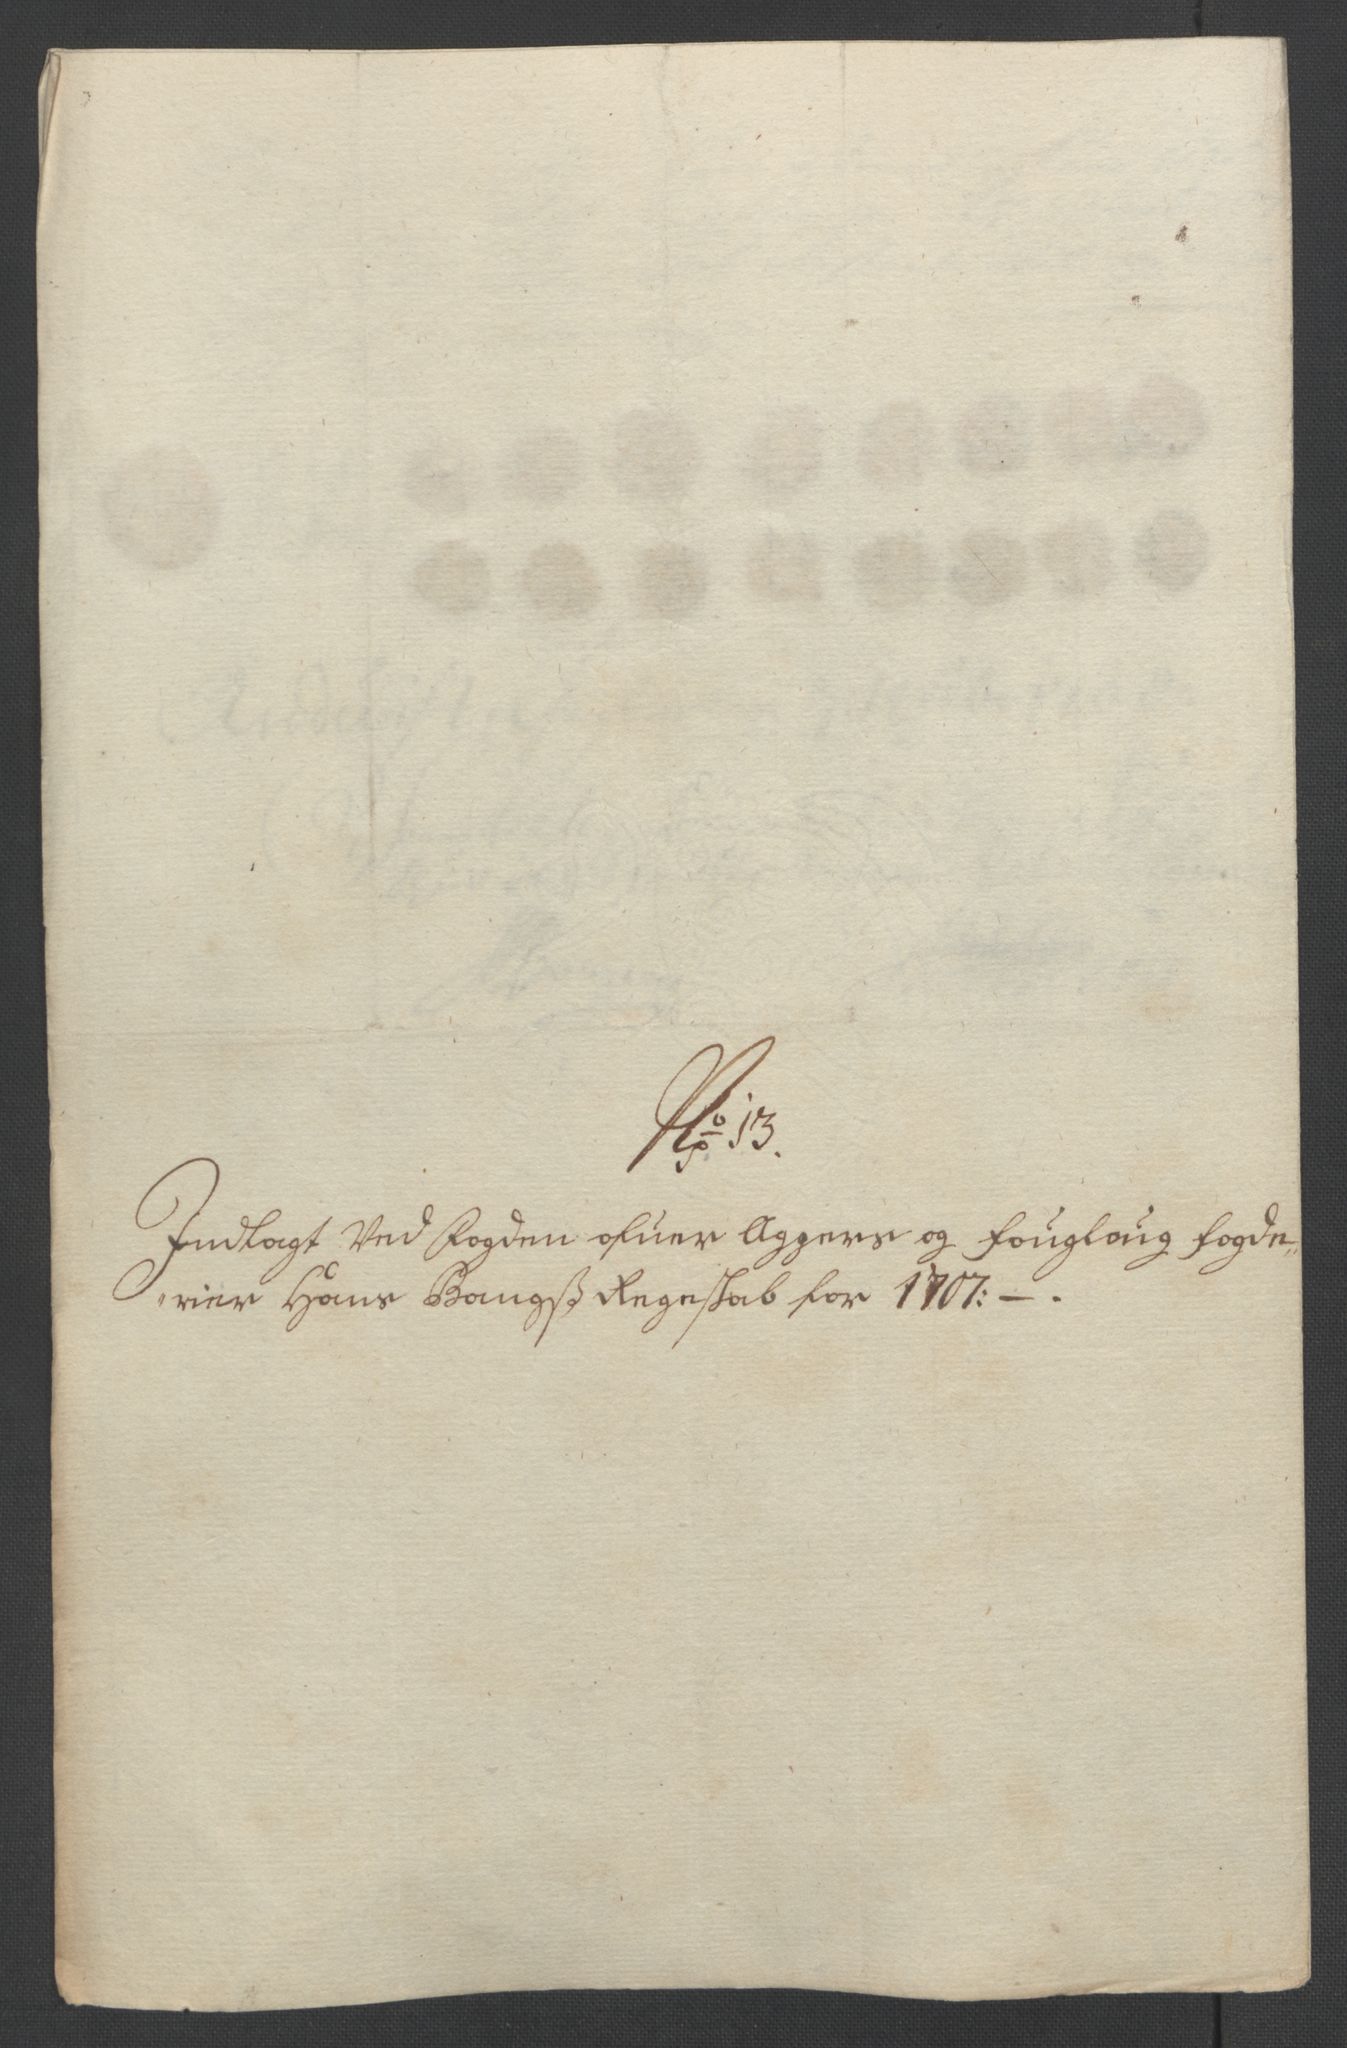 No 13.
Indlagt Ved Fogden ofuer Aggers og Fougloug fogde„
„rier Hans Bangsß Regeskab for 1707: —.